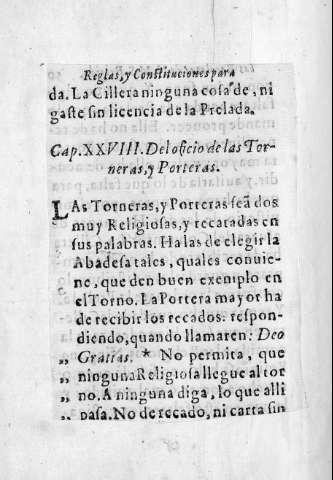 Reglas, y Constituciones para
da. La Cillera ninguna cosa de, ni
gaste sin licencia de la Prelada.
Cap. XXVIII. Del oficio de las Tor-
neras, y Porteras.
LAs Torneras, y Porteras seã dos
muy Religiosas, y recatadas en
sus palabras. Halas de elegir la
Abadesa tales, quales conuie-
ne, que den buen exemplo en
el Torno. La Portera mayor ha
de recibir los recados: respon-
diendo, quando llamaren: Deo
„ Gratias. * No permita, que
„ ninguna Religiosa llegue al tor
„ no. A ninguna diga, lo que alli
„ pasa. No de recado, ni carta sin